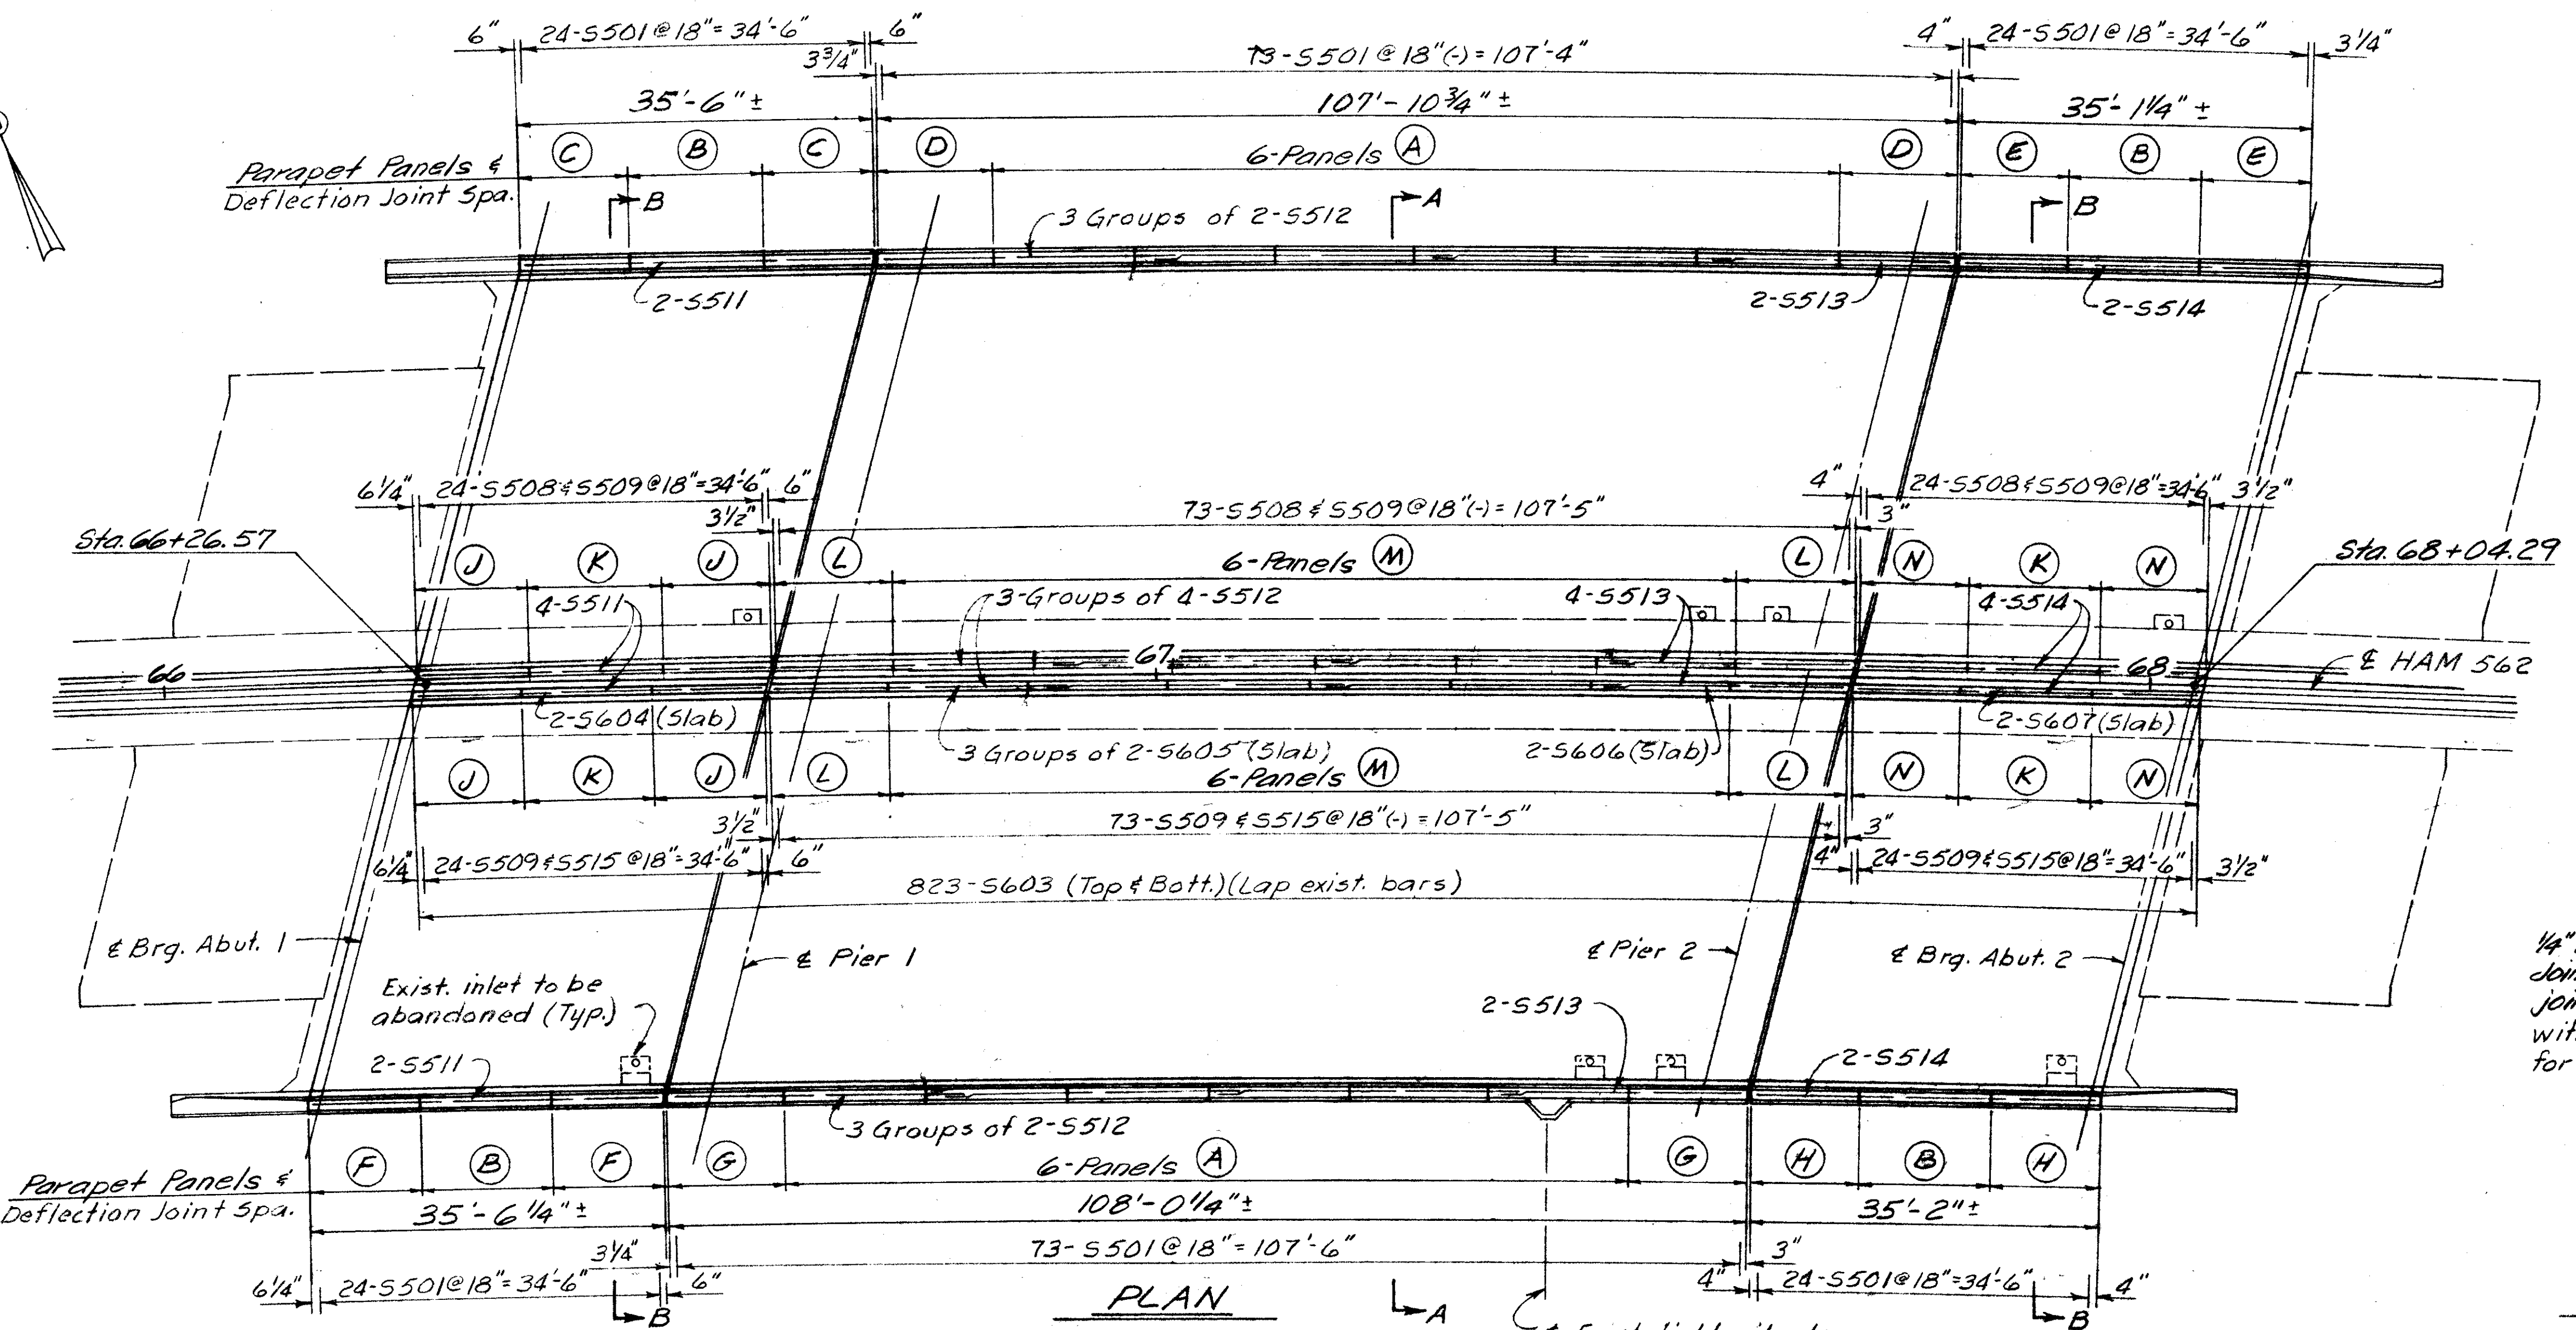 6" 24-S501@18"=34'-6" 6"
3¾" 73-S501@18"(-)=107'-4"
4" 24-S501@18"=34'-6" 3¼"
35'-6"± 107'-10¾"± 35'-1¼"±
Parapet Panels &
Deflection Joint Spa.
C B C D 6-Panels A D E B E
B A B
3 Groups of 2-S512
2-S511 2-S513 2-S514
6¼" 24-S508&S509@18"=34'-6" 6"
3½" 73-S508&S509@18"(-)=107'-5" 3"
4" 24-S508&S509@18"=34'-6" 3½"
Sta.66+26.57 Sta.68+04.29
J K J L 6-Panels M L N K N
4-S511 3-Groups of 4-S512 4-S513 4-S514
66 67 68 ℄ HAM 562
2-S604(Slab) 3 Groups of 2-S605(Slab) 2-S606(Slab) 2-S607(Slab)
J K J L 6-Panels M L N K N
3½" 73-S509&S515@18"(-)=107'-5" 3"
6¼" 24-S509&S515@18"=34'-6" 6"
4" 24-S509&S515@18"=34'-6" 3½"
823-S603 (Top & Bott.)(Lap exist. bars)
℄ Brg. Abut. 1 ℄ Pier 1 ℄ Pier 2 ℄ Brg. Abut. 2
Exist. inlet to be
abandoned (Typ.)
2-S511 2-S513 2-S514
3 Groups of 2-S512
F B F G 6-Panels A G H B H
Parapet Panels &
Deflection Joint Spa.
35'-6¼"± 108'-0¼"± 35'-2"±
3¼" 73-S501@18"=107'-6" 3"
6¼" 24-S501@18"=34'-6" 6"
4" 24-S501@18"=34'-6" 4"
B A B
PLAN
¼"
for